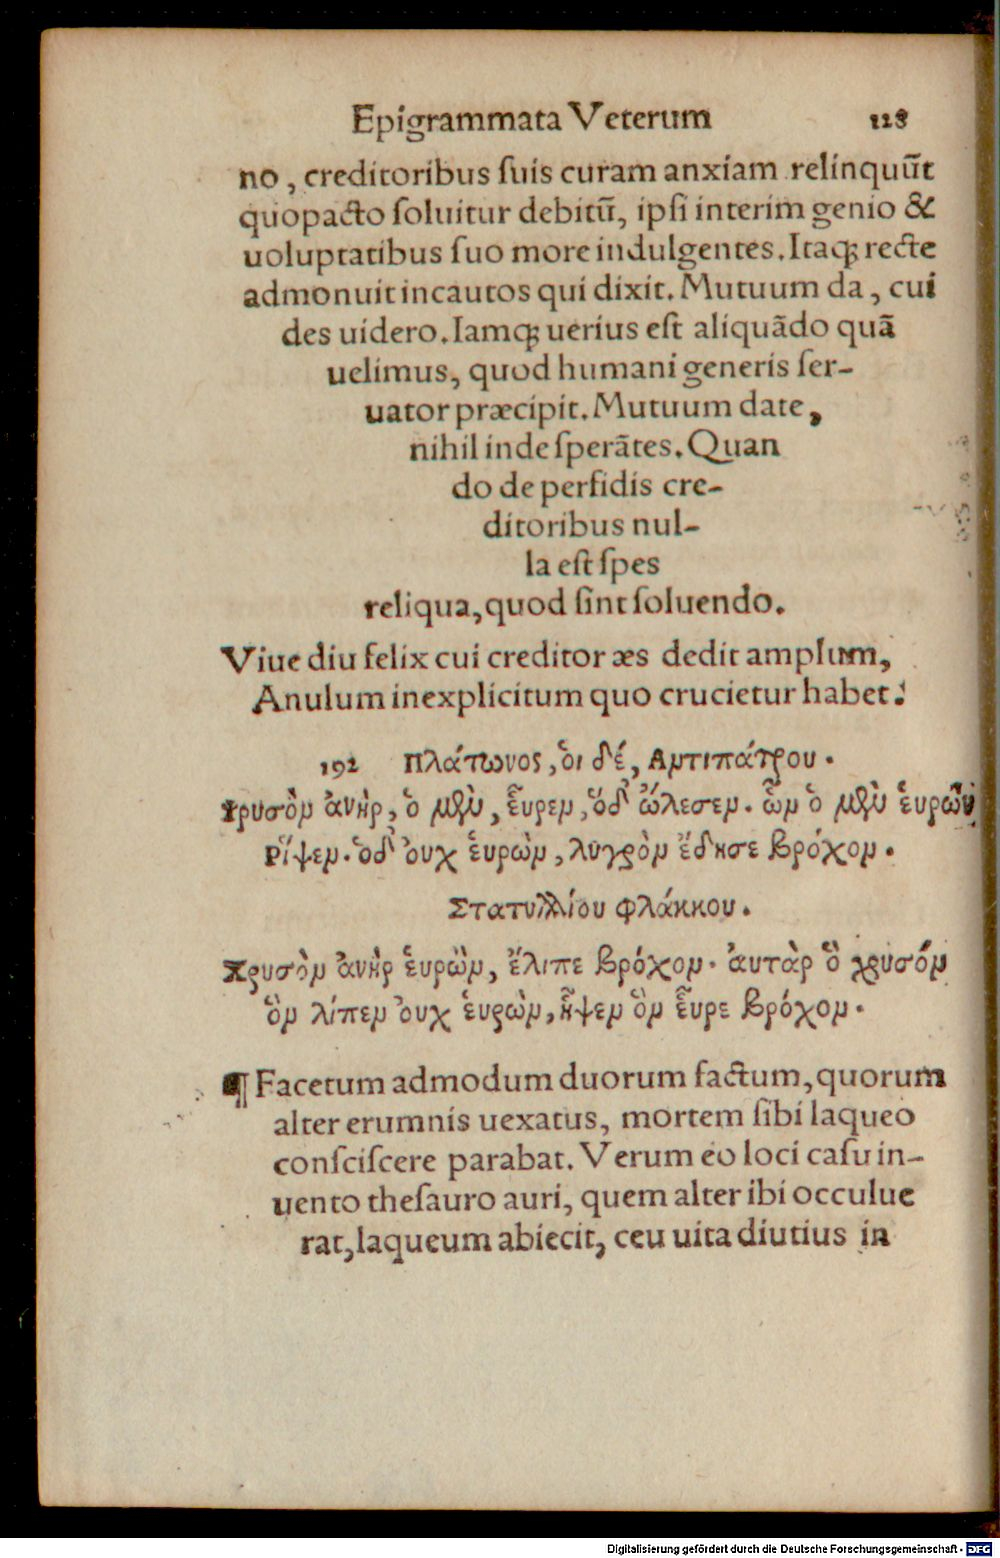 Epigrammata Veterum 118
no, creditoribus ſuis curam anxiam relinquũt
quopacto ſoluitur debitũ, ipſi interim genio &
uoluptatibus ſuo more indulgentes. Itaq; recte
admonuit incautos qui dixit. Mutuum da, cui
des uidero. Iamq; uerius eſt aliquãdo quã
uelimus, quod humani generis ſer-
uator præcipit. Mutuum date,
nihil inde ſperãtes. Quan
do de perfidis cre-
ditoribus nul-
la eſt ſpes
reliqua, quod ſint ſoluendo.
Viue diu felix cui creditor æs dedit amplum,
Anulum inexplicitum quo crucietur habet.
192 Πλάτωνος, ὁι δέ, Αντιπάτρου.
χρυσὸν ἀνὴρ, ὁ μὲν, ἕυρεν, ὅδ' ὤλεσεν. ὧν ὁ μὲν ἑυρὼν
Ρίψεν. ὁδ' ὀυχ ἑυρὼν, λυγρὸν ἔδησε βρόχον.
Στατυλλίου φλάκκου.
Χρυσὸν ἀνὴρ ἑυρὼν, ἔλιπε βρόχον. ἀυτὰρ ὃ χρυσόν
ὃν λίπεν ὀυχ ἑυρὼν, ἧψεν ὃν ἕυρε βρόχον.
¶ Facetum admodum duorum factum, quorum
alter erumnis uexatus, mortem ſibi laqueo
conſciſcere parabat. Verum eo loci caſu in-
uento theſauro auri, quem alter ibi occulue
rat, laqueum abiecit, ceu uita diutius in
Digitalisierung gefördert durch die Deutsche Forschungsgemeinschaft - DFG